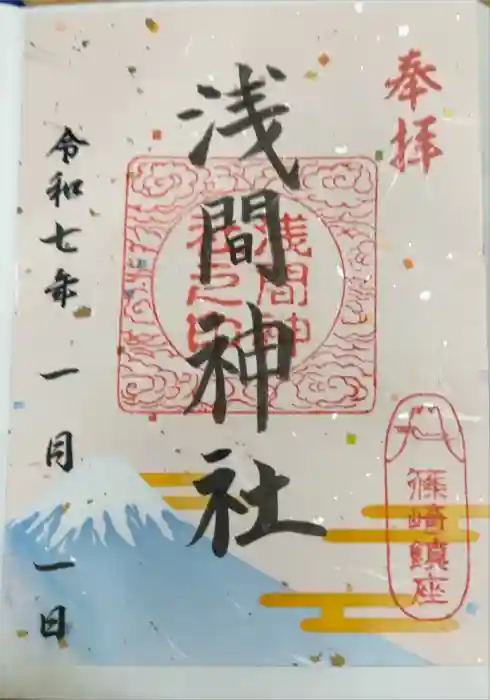 奉拝
浅間神社
浅間神
社之印
篠崎鎮座
令和七年一月一日